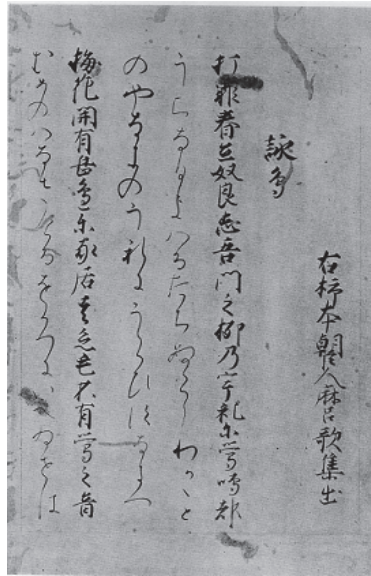 右柿本朝臣人麻呂歌集出
詠鳥
打霏春立奴良志吾門之柳乃宇礼尓鶯鳴都
うちなひきはるたちぬらしわかゝと
のやなきのうれにうくひすなきつ
梅花開有岳邊尓家居者乏毛不有鶯之音
むめのはなさけるをかへにいへゐせは